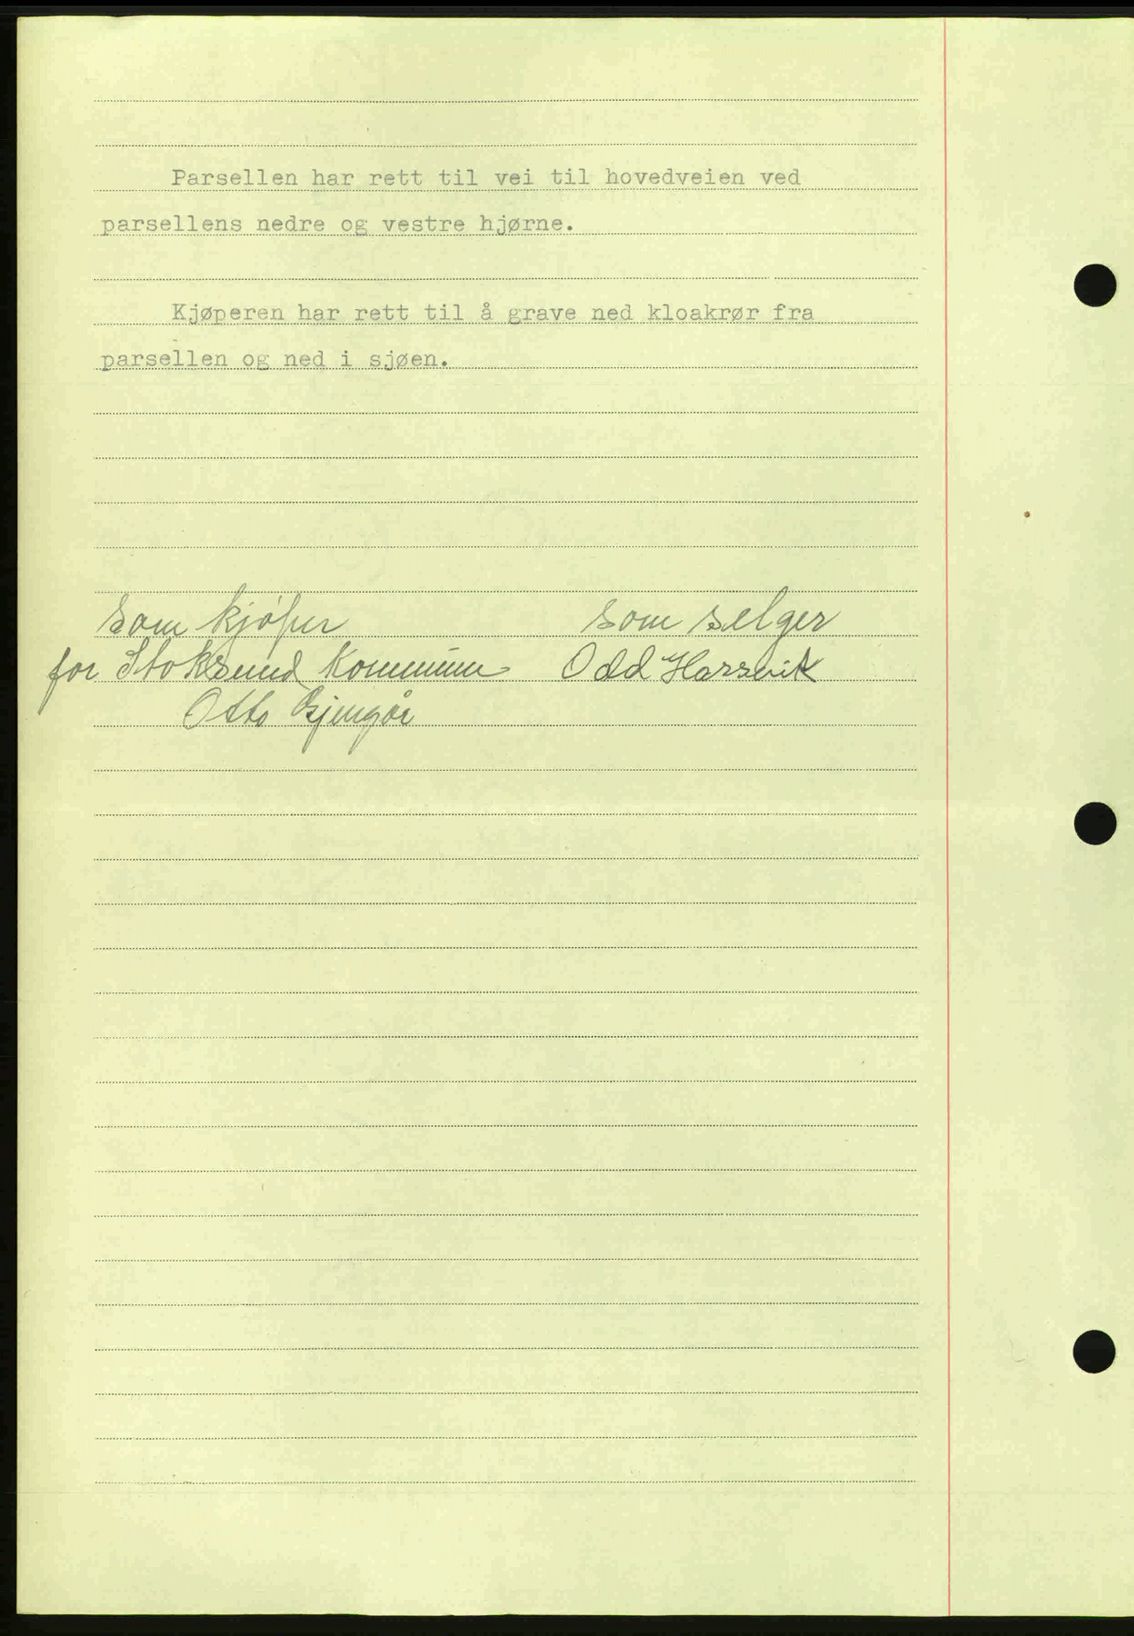 Parsellen har rett til vei til hovedveien ved
parsellens nedre og vestre hjørne.
Kjøperen har rett til å grave ned kloakrør fra
parsellen og ned i sjøen.
som kjøper som selger
for Stoksund Kommune Odd Harsvik
Otto Gjengår